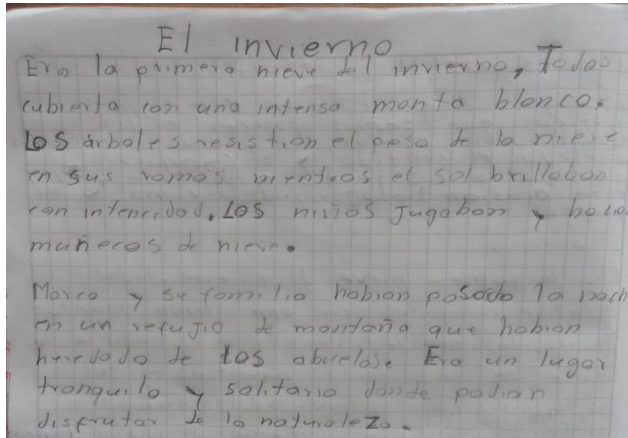 El invierno
Era la primera nieve del invierno, Todas
cubierta con una intensa manta blanco.
Los árboles resistían el peso de la nieve
en sus ramas mientras el sol brillaban
con intencidad. Los niños Jugaban y hacia
muñecos de nieve.
Marco y su familia habian pasado la noch
en un refujio de montaña que habian
heredado de los abuelos. Era un lugar
tranquilo y solitario donde podian
disfrutar de la naturaleza.